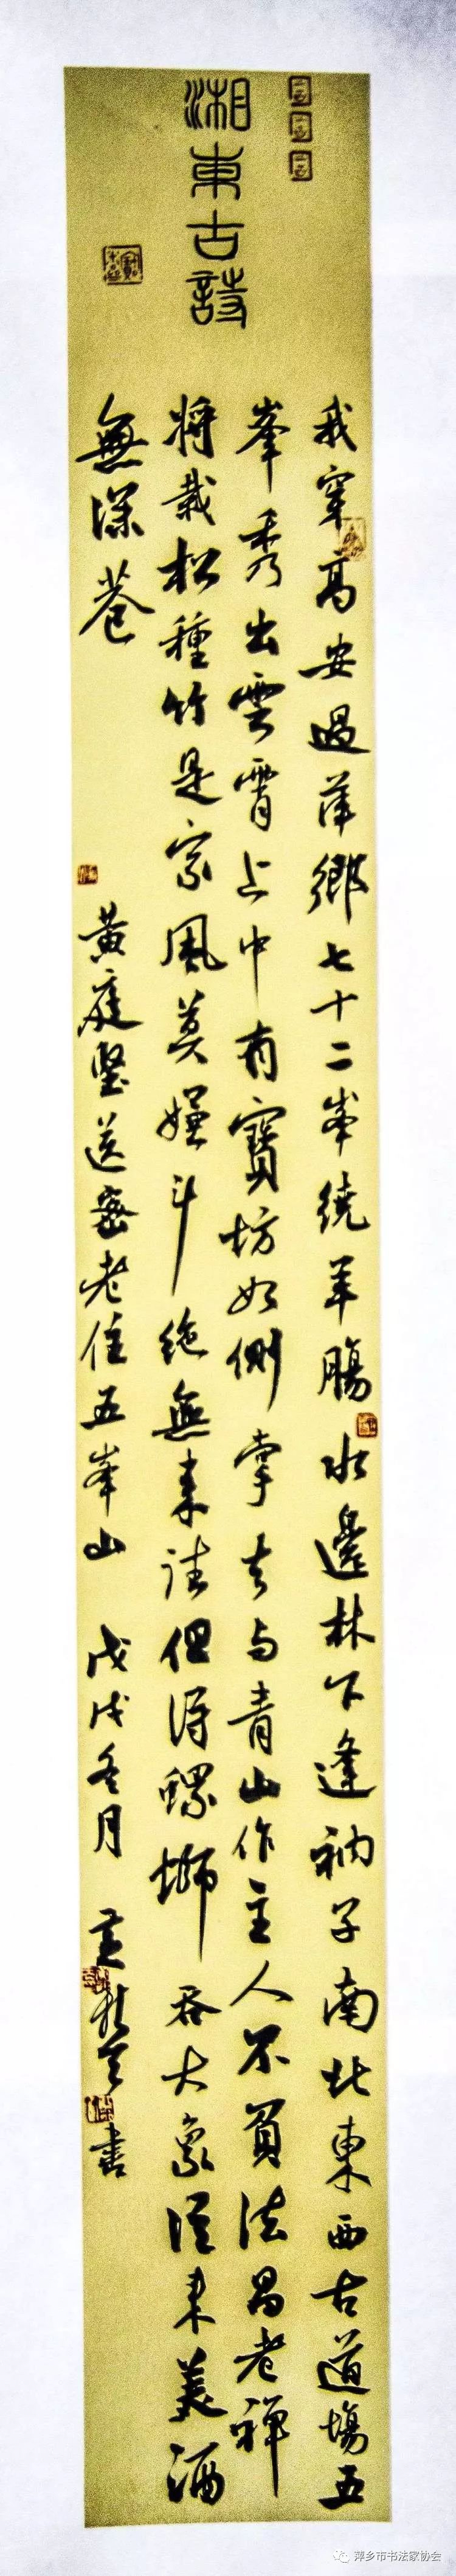 湘東古詩
我穿高安過萍鄉七十二峯繞羊腸水邊林下逢衲子南北東西古道場五
峯秀出雲霄上中有寶坊如側掌去与青山作主人不負法昌老禪
將栽松種竹是家風莫嫌斗絶無来往但得螺螄吞大象従来美酒
無深巷 黃庭堅送密老住五峯山 戊戌冬月 書
萍乡市书法家协会